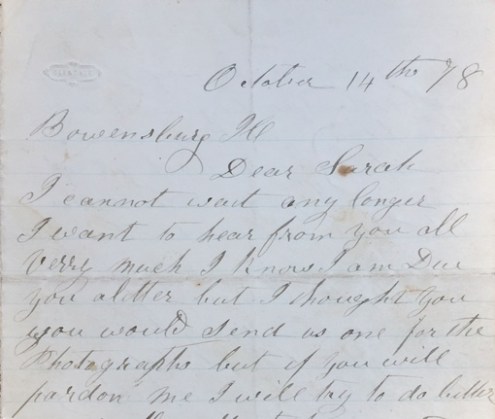 October 14th 78
Bowensburg Ill
Dear Sarah
I cannot wait any longer
I want to hear from you all
Verry much I know I am Due
you a litter but I thought you
you would send us one for the
Photographs but if you will
pardon me I will try to do better